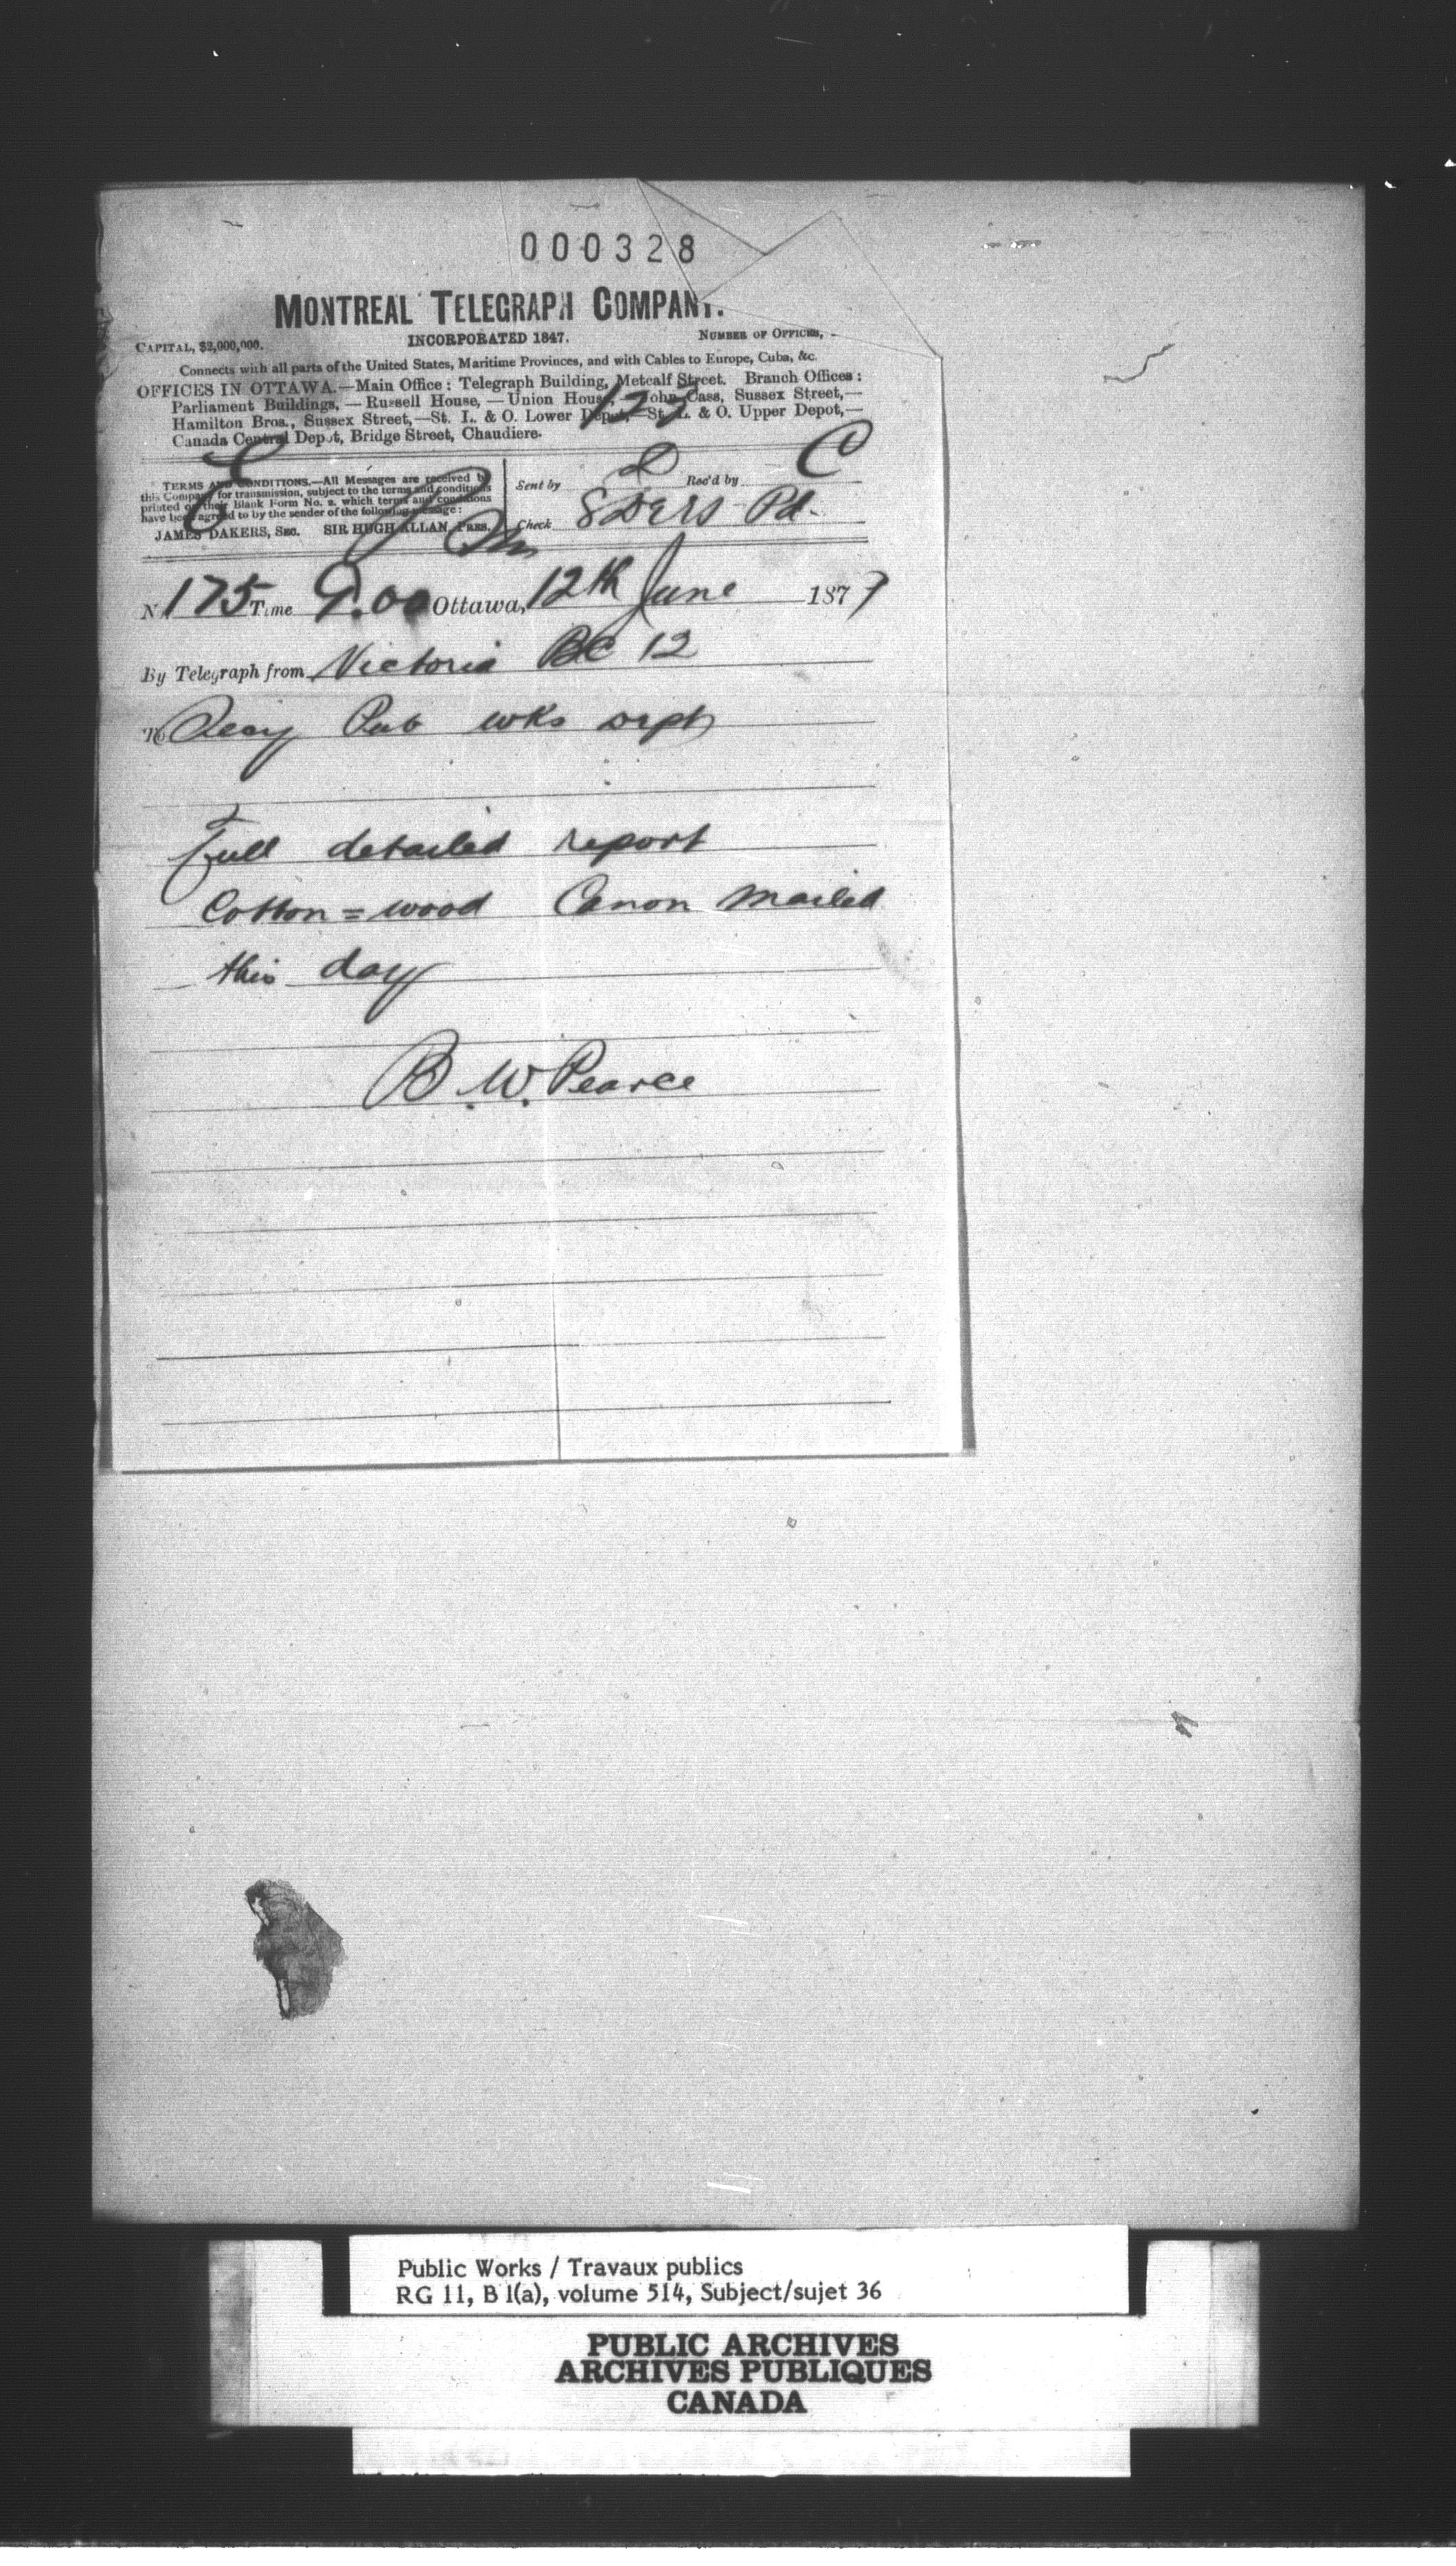 000328
MONTREAL TELEGRAPH COMPANY.
CAPITAL, $2,000,000. INCORPORATED 1847. NUMBER OF OFFICES,
Connects with all parts of the United States, Maritime Provinces, and with Cables to Europe, Cuba, &c.
OFFICES IN OTTAWA.—Main Office: Telegraph Building, Metcalf Street. Branch Offices:
Parliament Buildings, — Russell House, — Union House, — John Cass, Sussex Street,—
Hamilton Bros., Sussex Street,—St. L. & O. Lower Depot,—St. L. & O. Upper Depot,—
Canada Central Depot, Bridge Street, Chaudiere.
TERMS AND CONDITIONS.—All Messages are received by
this Company for transmission, subject to the terms and conditions
printed on their Blank Form No. 2, which terms and conditions
have been agreed to by the sender of the following message:
JAMES DAKERS, SEC. SIR HUGH ALLAN, PRES.
Sent by Rec'd by C
Check Pd.
N 175 Time 9.00 Ottawa, 12th June 1877
By Telegraph from Victoria BC 12
To Secy Pub wks
Full detailed report
Cotton=wood Canon mailed
this day
B. W. Pearce
Public Works / Travaux publics
RG 11, B 1(a), volume 514, Subject/sujet 36
PUBLIC ARCHIVES
ARCHIVES PUBLIQUES
CANADA